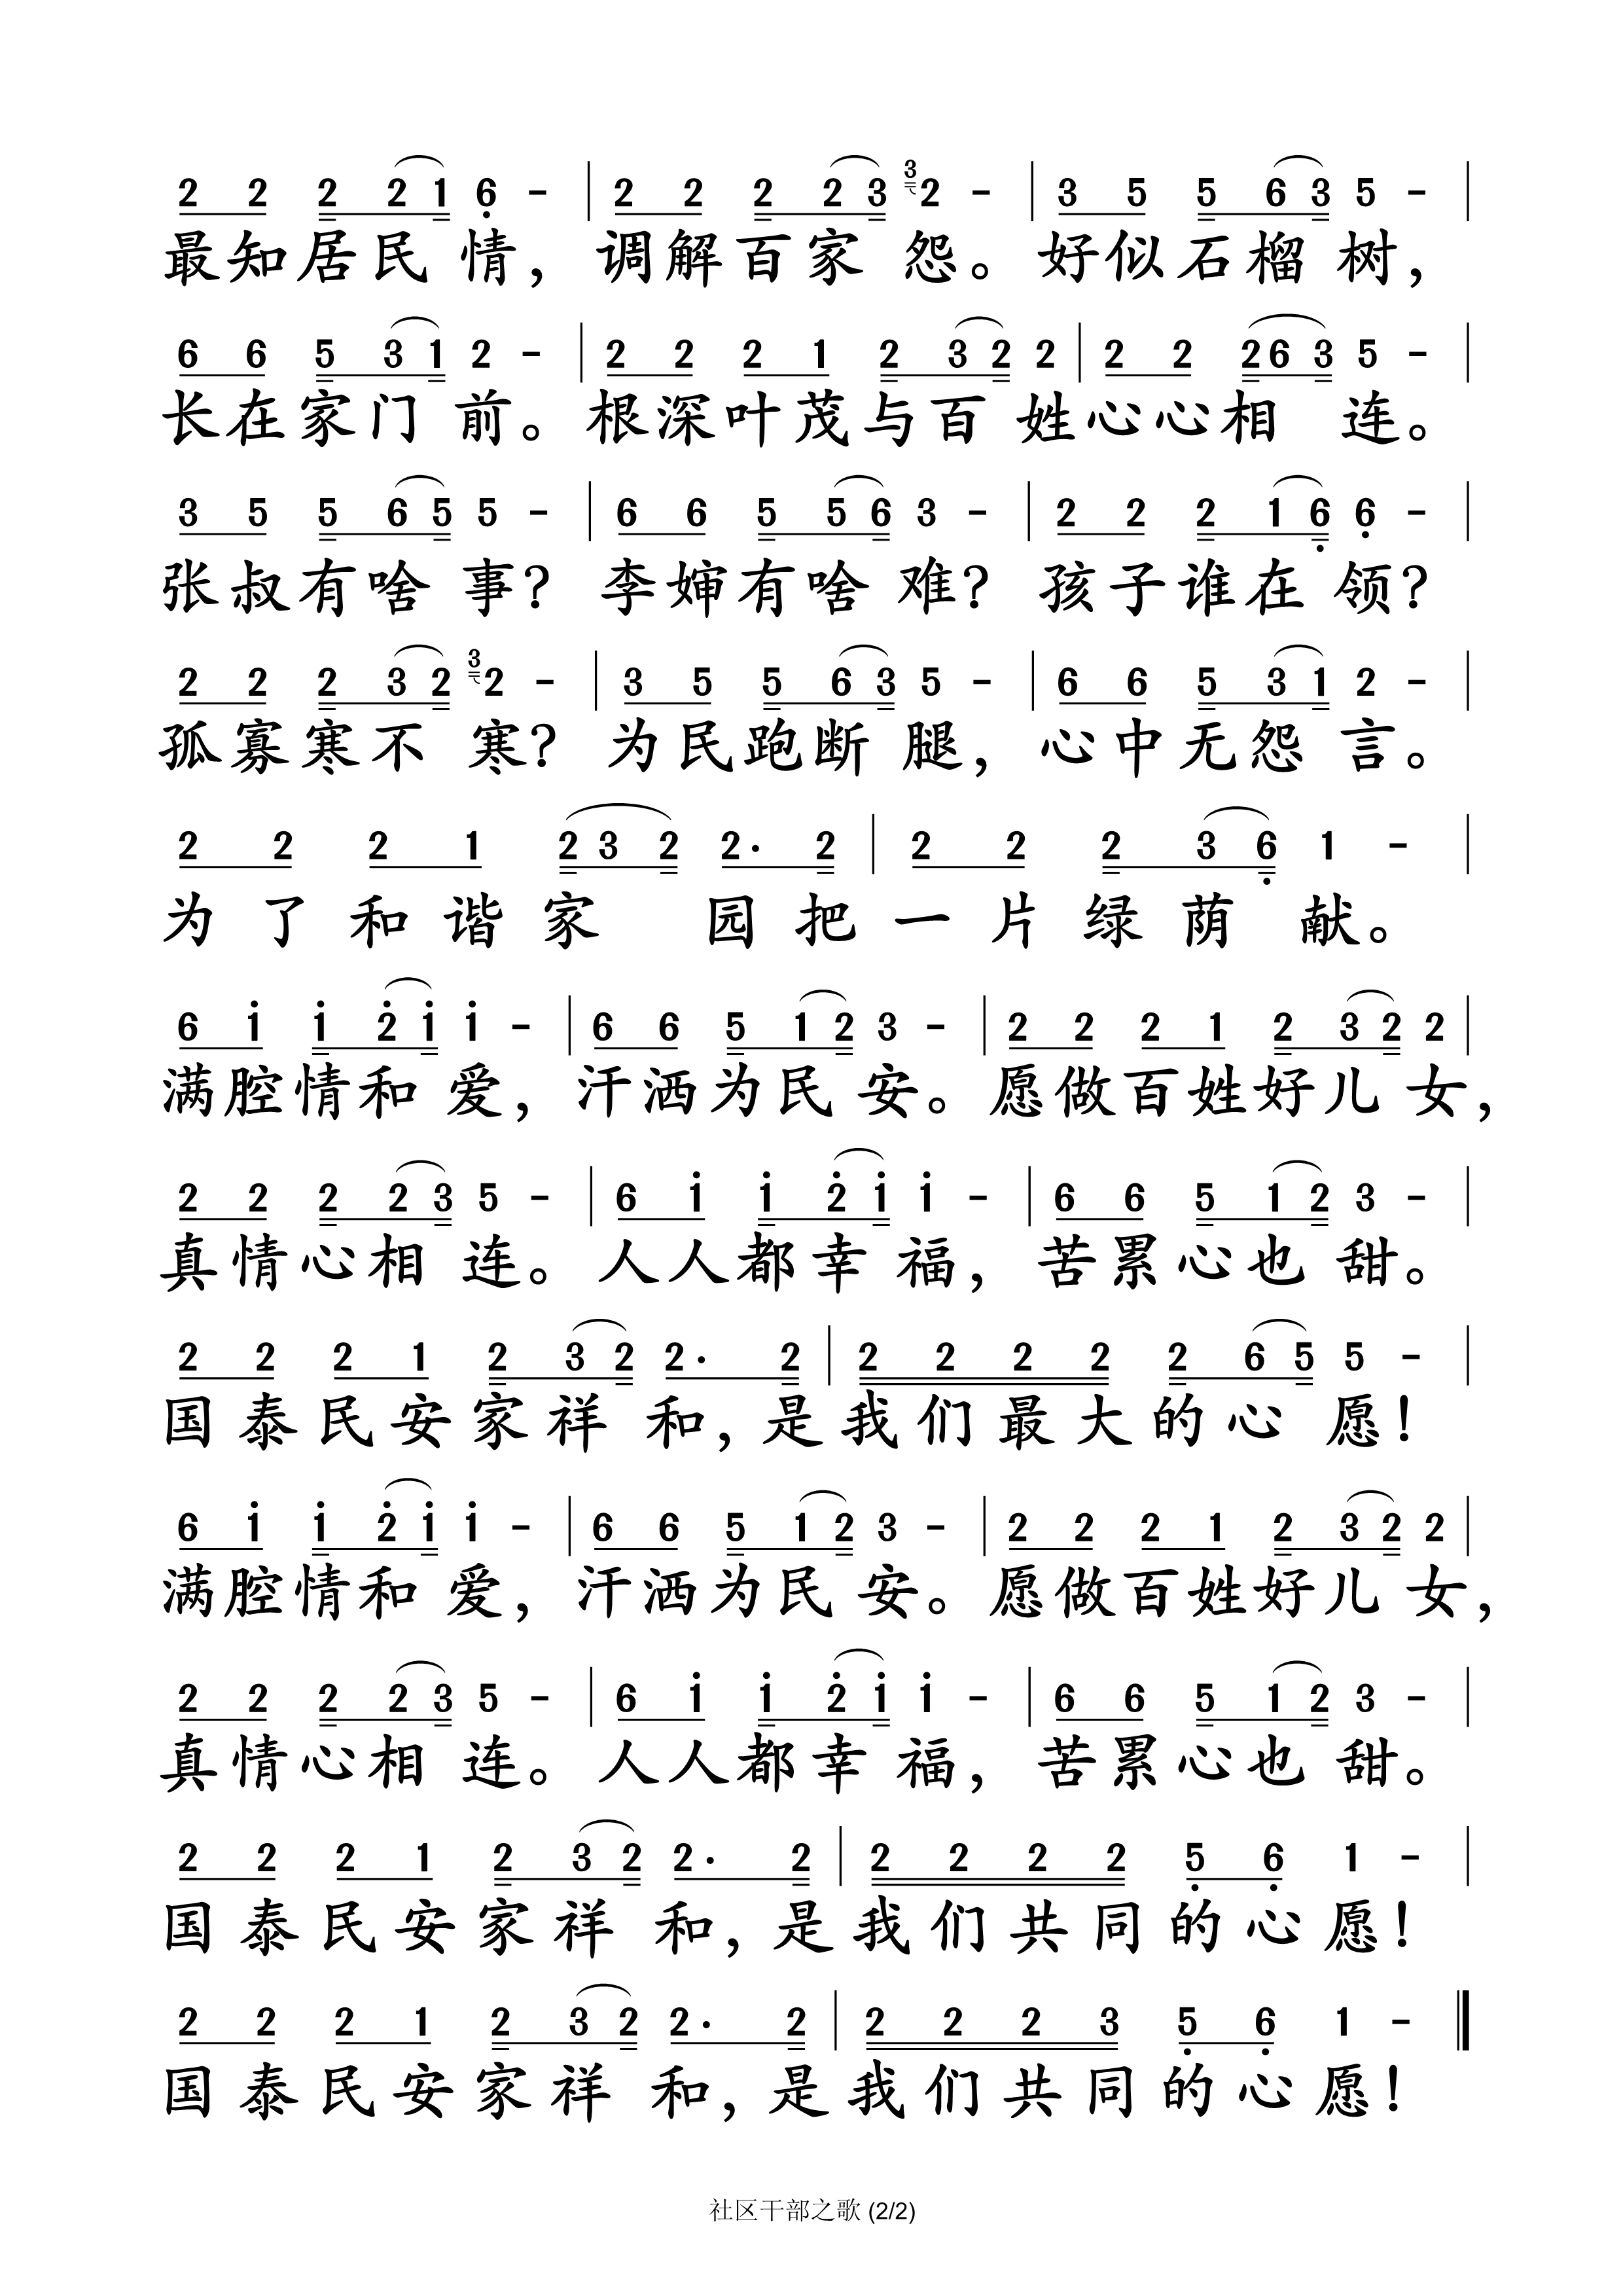 2 2 2 2 1 6 - | 2 2 2 2 3 3 2 - | 3 5 5 6 3 5 - |
最知居民情，调解百家怨。好似石榴树，
6 6 5 3 1 2 - | 2 2 2 1 2 3 2 2 | 2 2 2 6 3 5 - |
长在家门前。根深叶茂与百姓心心相连。
3 5 5 6 5 5 - | 6 6 5 5 6 3 - | 2 2 2 1 6 6 - |
张叔有啥事？李婶有啥难？孩子谁在领？
2 2 2 3 2 3 2 - | 3 5 5 6 3 5 - | 6 6 5 3 1 2 - |
孤寡寒不寒？为民跑断腿，心中无怨言。
2 2 2 1 2 3 2 2· 2 | 2 2 2 3 6 1 - |
为了和谐家园把一片绿荫献。
6 1 1 2 1 1 - | 6 6 5 1 2 3 - | 2 2 2 1 2 3 2 2 |
满腔情和爱，汗洒为民安。愿做百姓好儿女，
2 2 2 2 3 5 - | 6 1 1 2 1 1 - | 6 6 5 1 2 3 - |
真情心相连。人人都幸福，苦累心也甜。
2 2 2 1 2 3 2 2· 2 | 2 2 2 2 2 6 5 5 - |
国泰民安家祥和，是我们最大的心愿！
6 1 1 2 1 1 - | 6 6 5 1 2 3 - | 2 2 2 1 2 3 2 2 |
满腔情和爱，汗洒为民安。愿做百姓好儿女，
2 2 2 2 3 5 - | 6 1 1 2 1 1 - | 6 6 5 1 2 3 - |
真情心相连。人人都幸福，苦累心也甜。
2 2 2 1 2 3 2 2· 2 | 2 2 2 2 5 6 1 - |
国泰民安家祥和，是我们共同的心愿！
2 2 2 1 2 3 2 2· 2 | 2 2 2 3 5 6 1 - ‖
国泰民安家祥和，是我们共同的心愿！
社区干部之歌 (2/2)